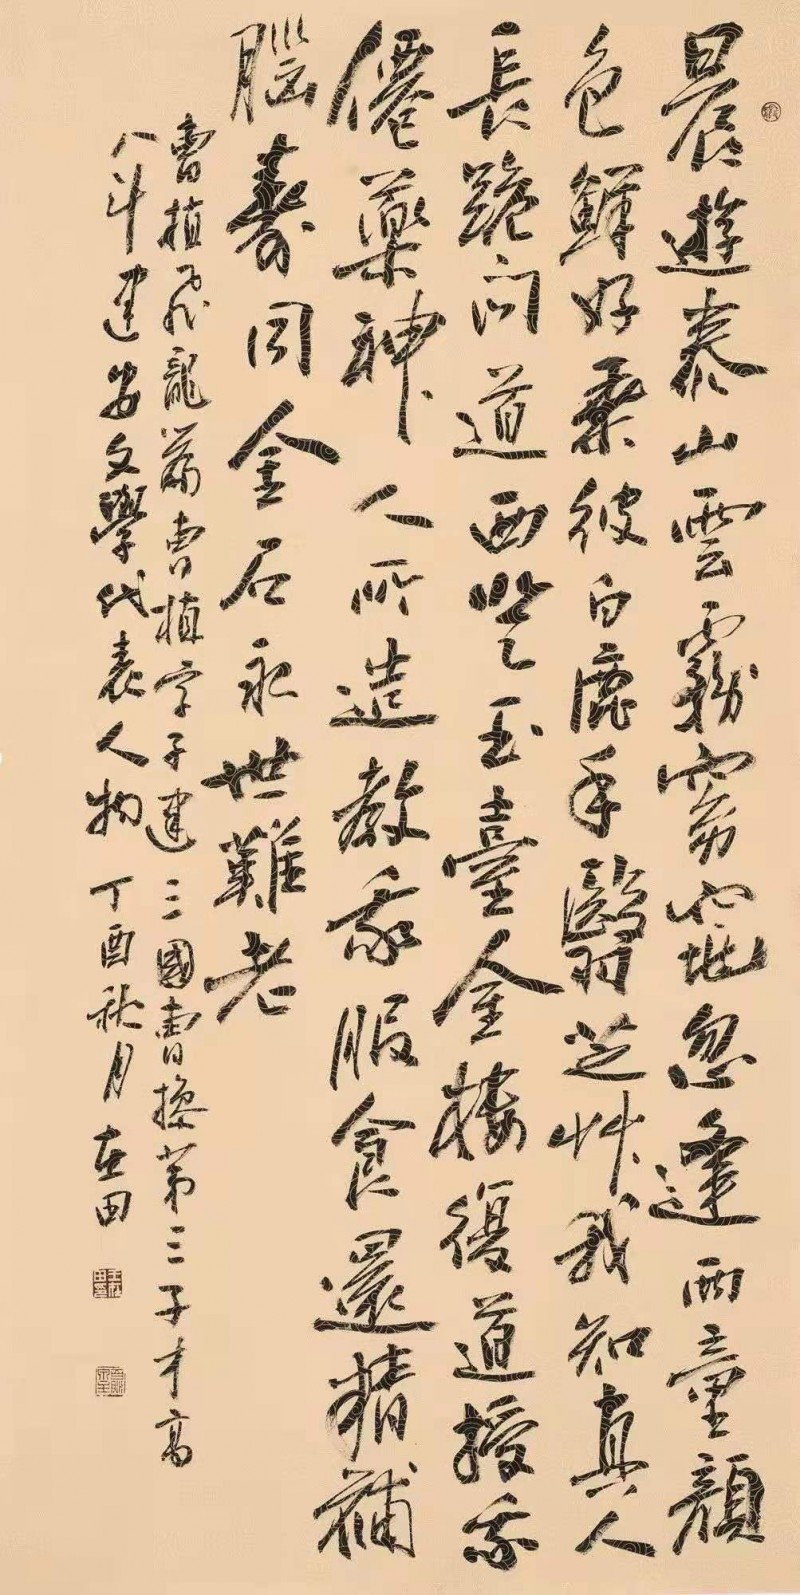 晨遊泰山雲霧窈窕忽逢兩童顏
色鮮好乘彼白鹿手翳芝艸我知真人
長跪問道西登玉臺金樓復道授我
僊藥神人所造教我服食還精補
腦壽同金石永世難老
曹植飛龍篇曹植字子建三國曹操第三子才高
八斗建安文學代表人物丁酉秋月在田